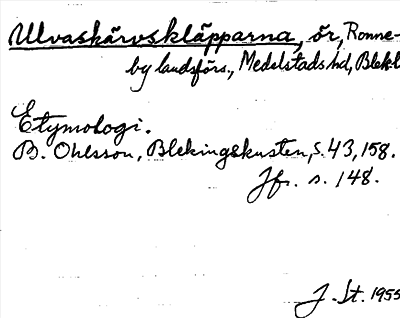 Ulvaskärvskläpparna, ör, Ronne-
by landsförs., Medelstads hd, Blekl
Etymologi.
B. Ohlsson, Blekingskusten, s. 43, 158.
Jfr. s. 148.
J. St. 1955